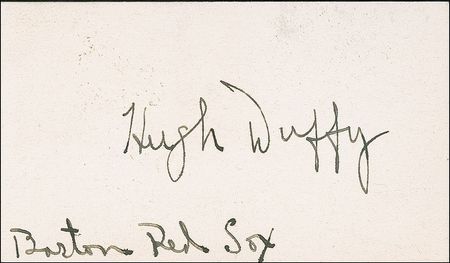 Hugh Duffy
Boston Red Sox